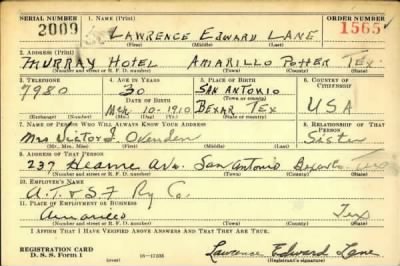 SERIAL NUMBER 1. NAME (Print) ORDER NUMBER
2009 LAWRENCE EDWARD LANE 1565
(First) (Middle) (Last)
2. ADDRESS (Print)
MURRAY HOTEL AMARILLO POTTER TEX.
(Number and street or R. F. D. number) (Town) (County) (State)
3. TELEPHONE 4. AGE IN YEARS 5. PLACE OF BIRTH 6. COUNTRY OF CITIZENSHIP
7980 30 SAN ANTONIO
DATE OF BIRTH (Town or county)
10-1910 BEXAR TEX USA
(Exchange) (Number) (Mo.) (Day) (Yr.) (State or country)
7. NAME OF PERSON WHO WILL ALWAYS KNOW YOUR ADDRESS 8. RELATIONSHIP OF THAT PERSON
Mrs Victor I. Sister
(Mr., Mrs., Miss) (First) (Middle) (Last)
9. ADDRESS OF THAT PERSON
237 Ave. San Antonio Texas
(Number and street or R. F. D. number) (Town) (County) (State)
10. EMPLOYER'S NAME
A.T.&S.F Ry Co.
11. PLACE OF EMPLOYMENT OR BUSINESS
Amarillo Tex
(Number and street or R. F. D. number) (Town) (County) (State)
I AFFIRM THAT I HAVE VERIFIED ABOVE ANSWERS AND THAT THEY ARE TRUE.
REGISTRATION CARD
D. S. S. FORM 1 Lawrence Edward Lane
(Registrant's signature)